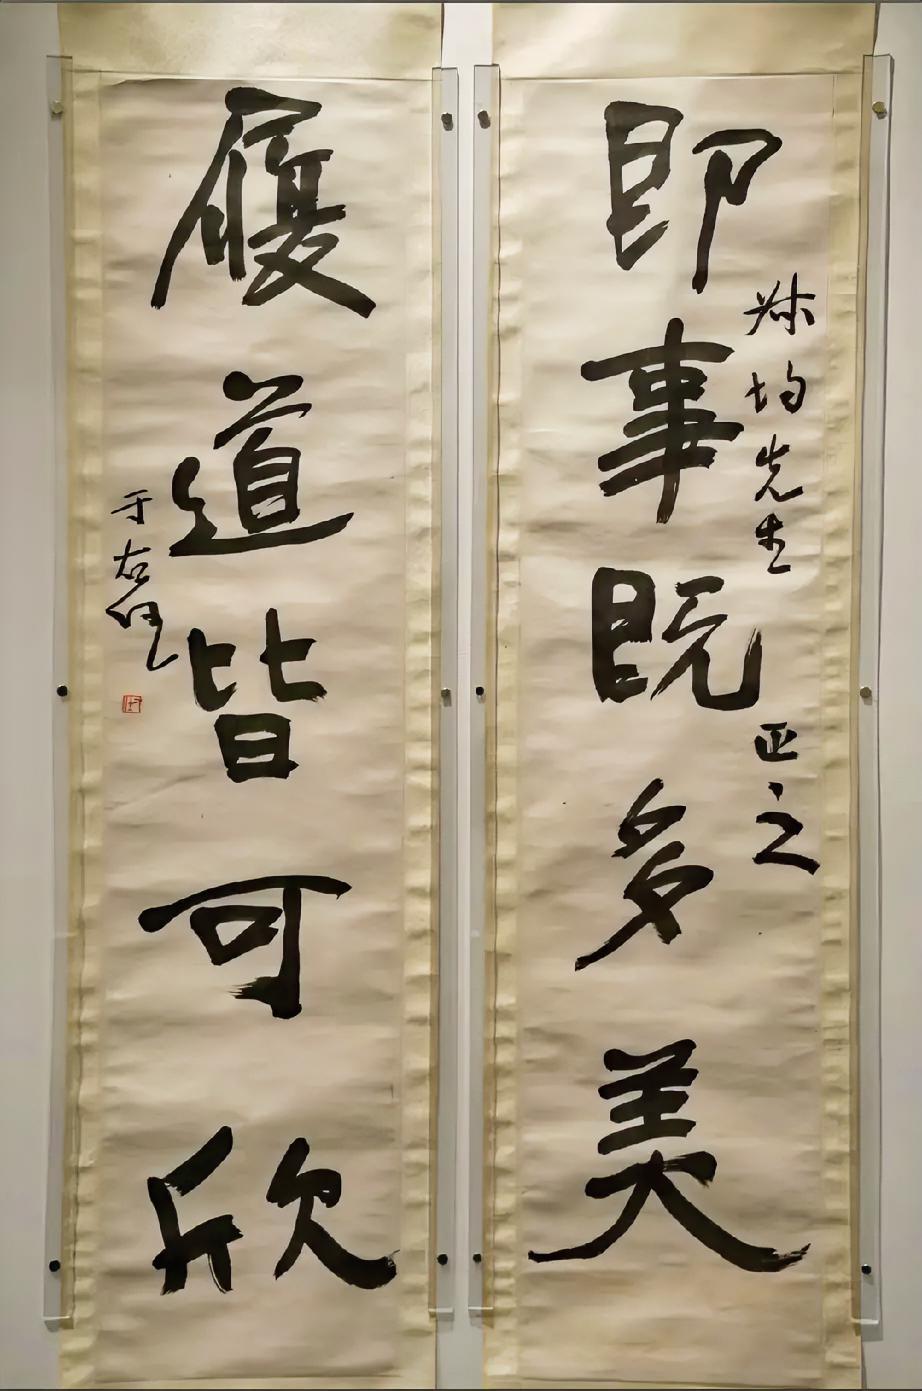 均先生
正之
即事既多美
履道皆可欣
于右任